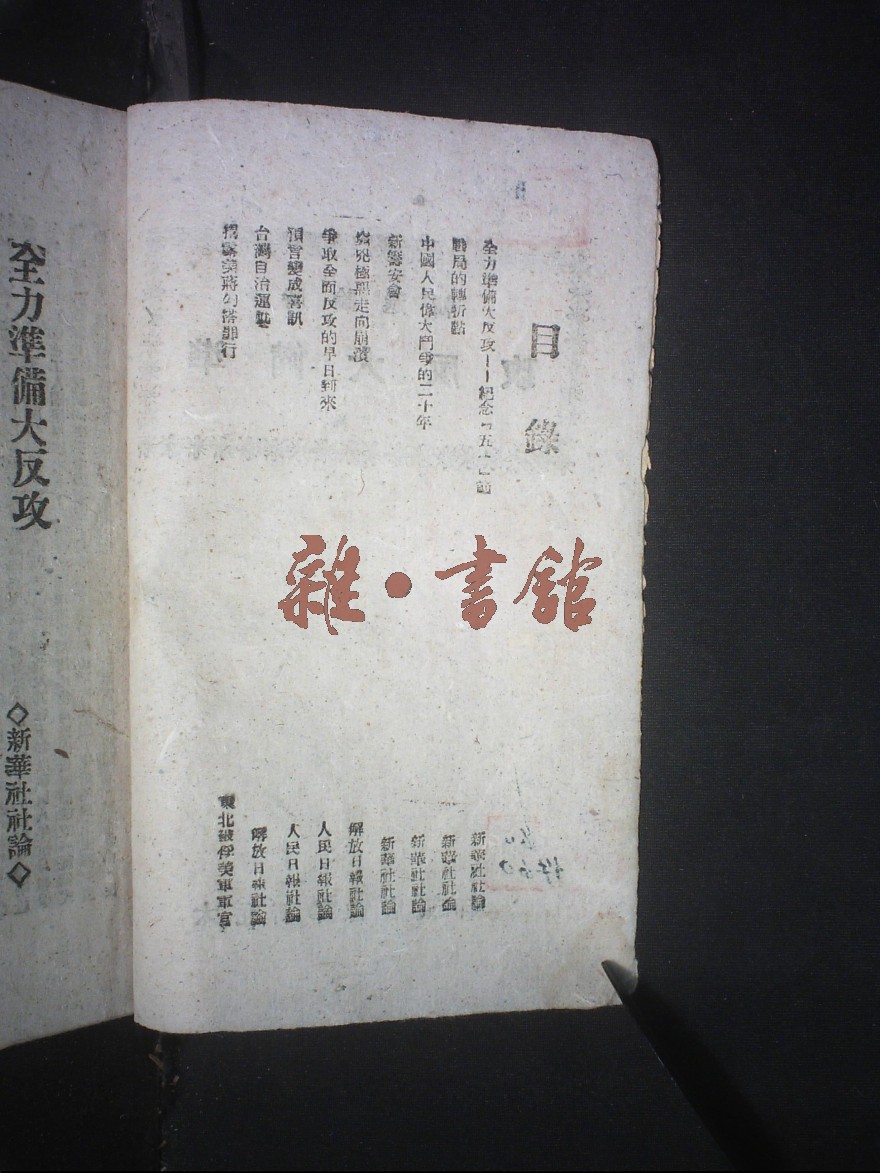 目錄
全力準備大反攻——紀念「五一」論
新華社社論
戰局的轉折點
新華社社論
中國人民偉大鬥爭的二十年
新華社社論
新籌安會
新華社社論
窮兇極惡走向崩潰
解放日報社論
爭取全面反攻的早日到來
人民日報社論
預言變成喜訊
人民日報社論
台灣自治運動
解放日報社論
揭露美蔣勾搭罪行
東北被俘美軍軍官
全力準備大反攻
◇新華社社論◇
雜•書館